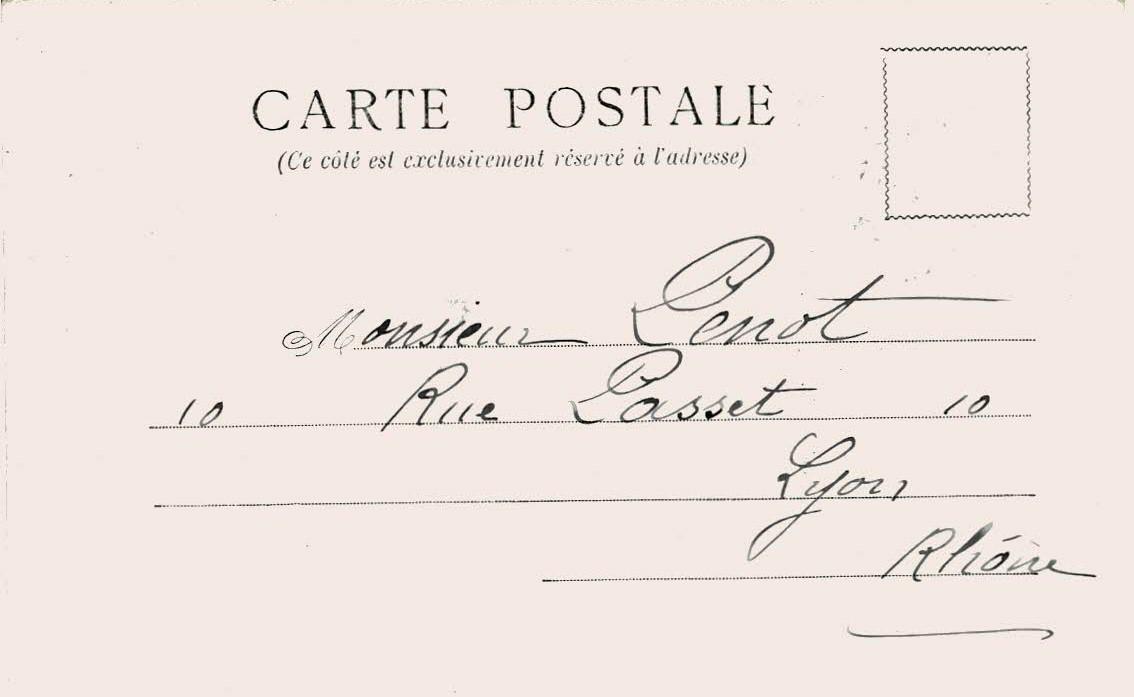 CARTE POSTALE
(Ce côté est exclusivement réservé à l'adresse)
Monsieur Penot
10 Rue Passet 10
Lyon
Rhône